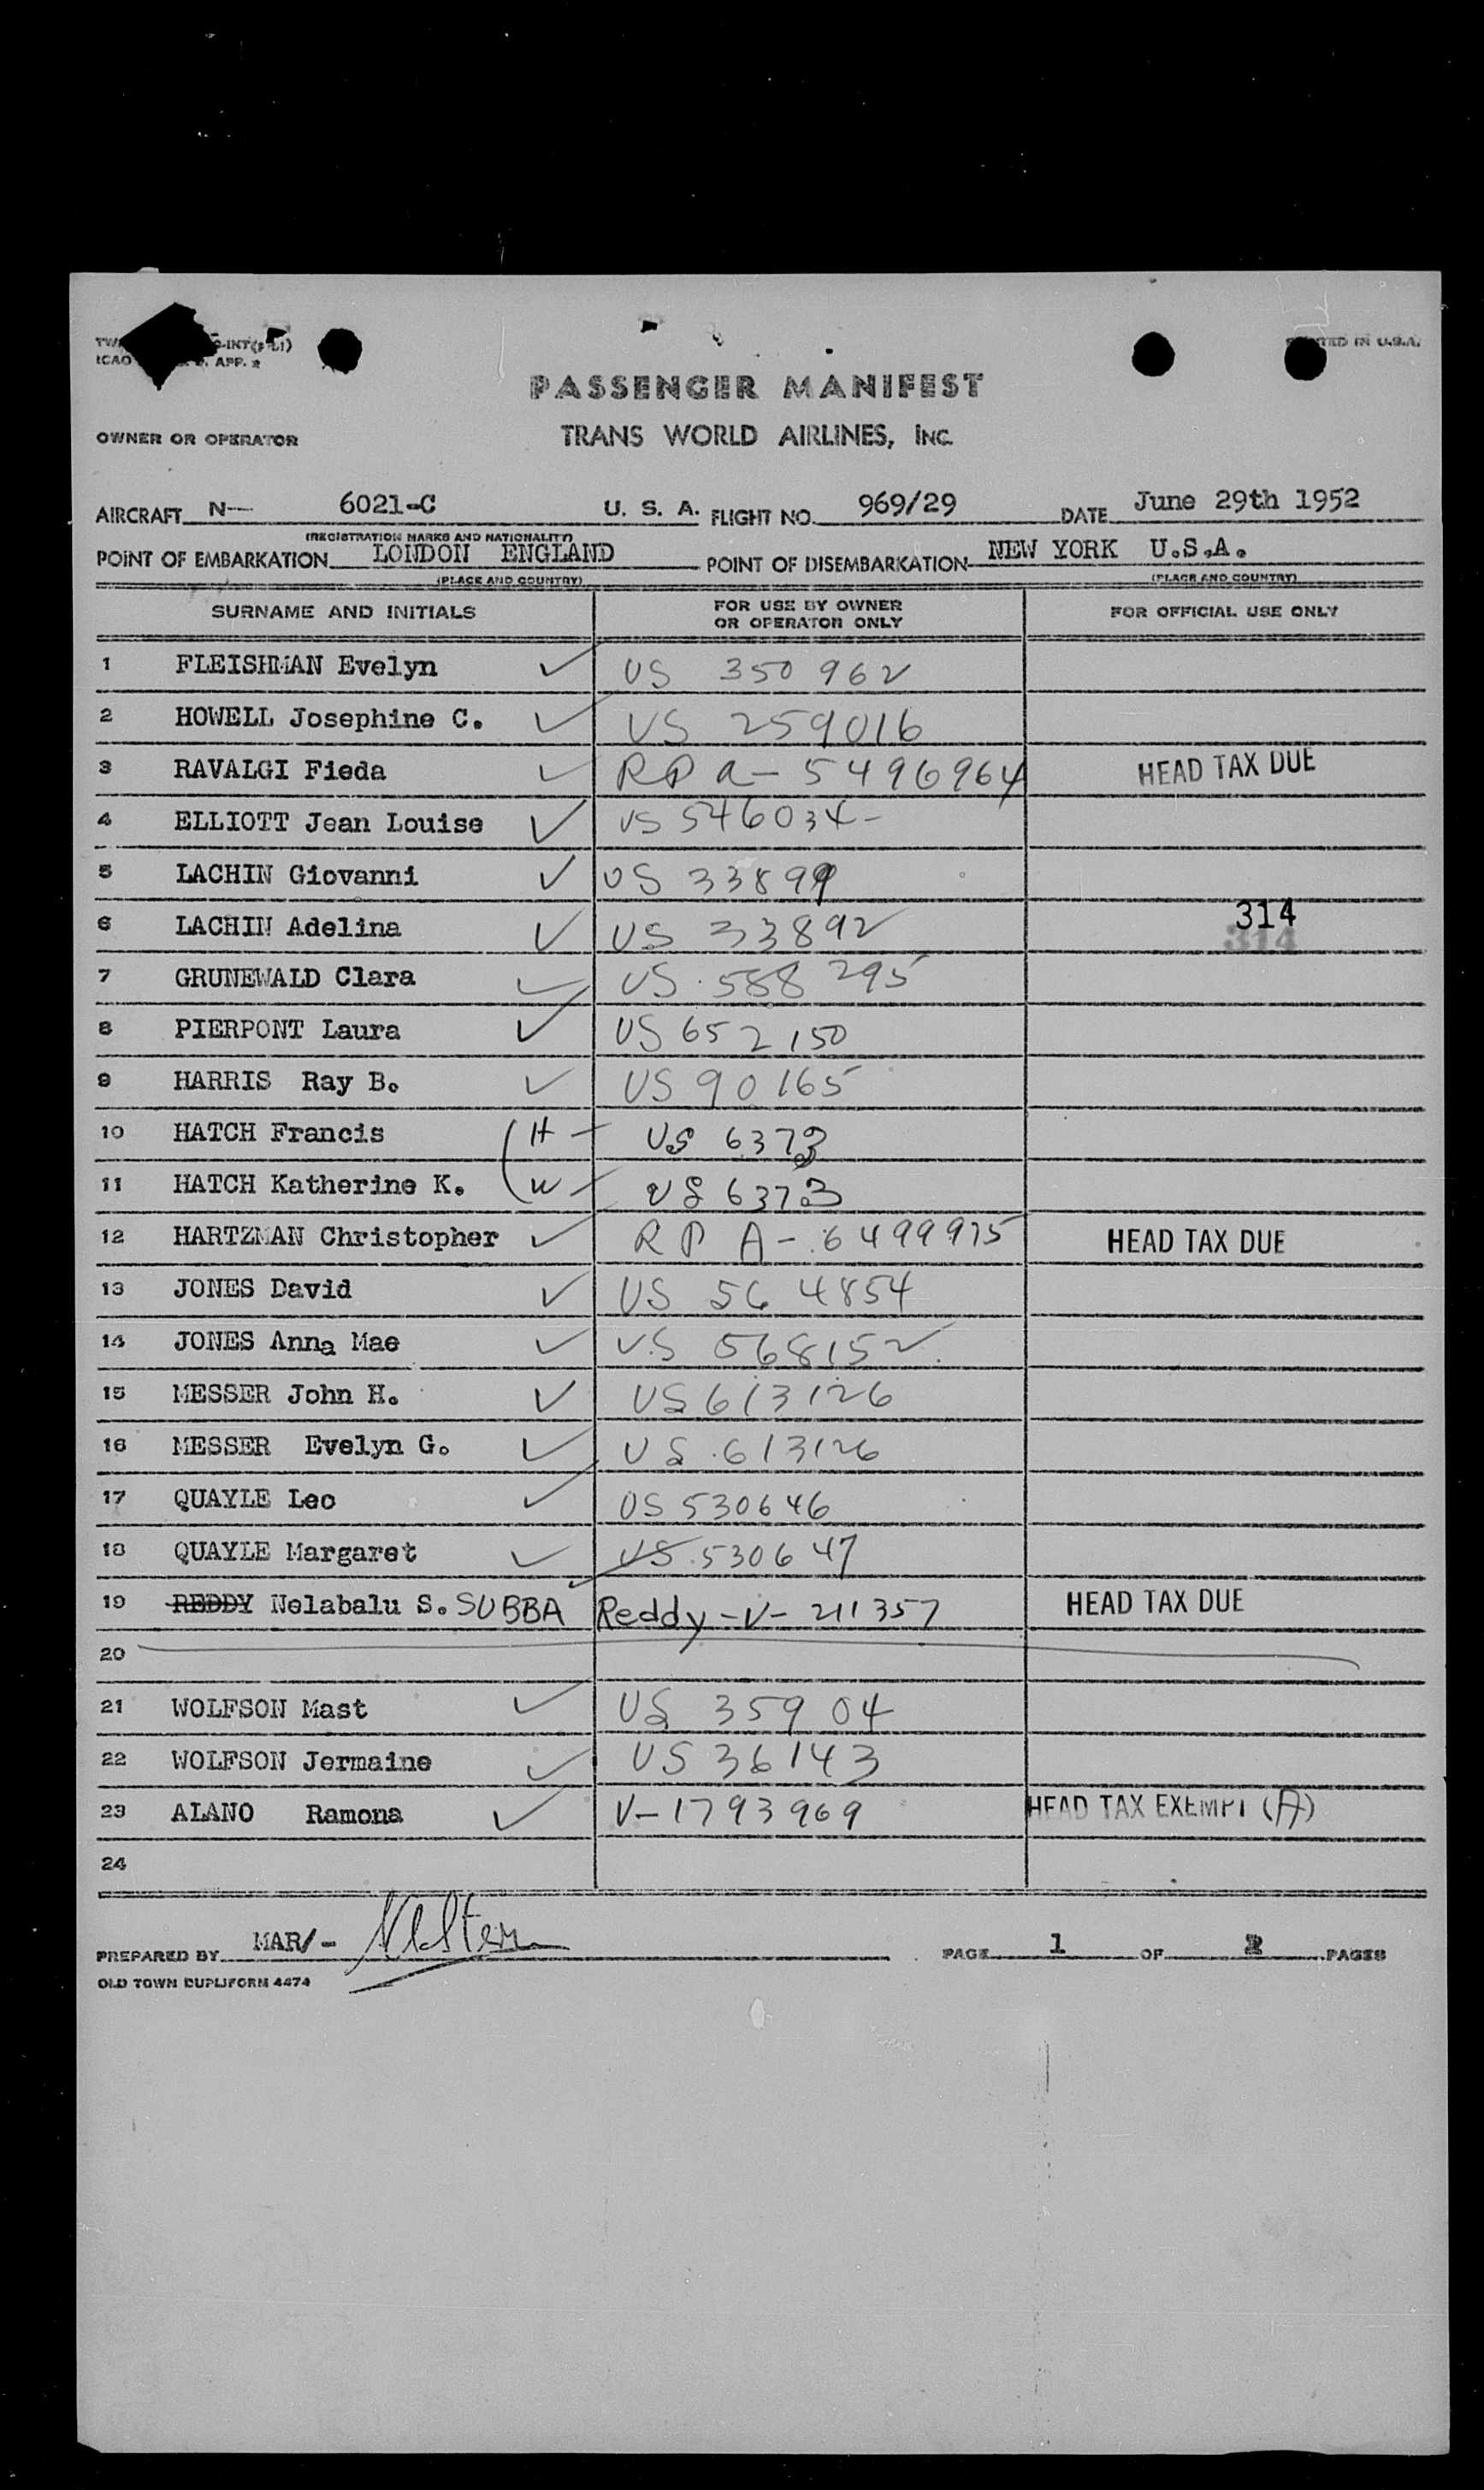 ICAO APP. 2
PASSENGER MANIFEST
OWNER OR OPERATOR TRANS WORLD AIRLINES, INC.
AIRCRAFT N— 6021-C U. S. A. FLIGHT NO. 969/29 DATE June 29th 1952
(REGISTRATION MARKS AND NATIONALITY)
POINT OF EMBARKATION LONDON ENGLAND POINT OF DISEMBARKATION NEW YORK U.S.A.
(PLACE AND COUNTRY) (PLACE AND COUNTRY)
SURNAME AND INITIALS FOR USE BY OWNER OR OPERATOR ONLY FOR OFFICIAL USE ONLY
1 FLEISHMAN Evelyn ✓ US 350962
2 HOWELL Josephine C. ✓ US 259016
3 RAVALGI Fieda ✓ RP a- 5496964 HEAD TAX DUE
4 ELLIOTT Jean Louise ✓ US 546034-
5 LACHIN Giovanni ✓ US 33899
6 LACHIN Adelina ✓ US 33892 314
7 GRUNEWALD Clara ✓ US 588 295
8 PIERPONT Laura ✓ US 652150
9 HARRIS Ray B. ✓ US 90165
10 HATCH Francis (H - US 6373
11 HATCH Katherine K. (W - US 6373
12 HARTZMAN Christopher ✓ RP A- 6499975 HEAD TAX DUE
13 JONES David ✓ US 564854
14 JONES Anna Mae ✓ US 568152
15 MESSER John H. ✓ US 613126
16 MESSER Evelyn G. ✓ US 613126
17 QUAYLE Leo ✓ US 530646
18 QUAYLE Margaret ✓ US 530647
19 REDDY Nelabalu S. SUBBA Reddy -V- 211357 HEAD TAX DUE
20
21 WOLFSON Mast ✓ US 35904
22 WOLFSON Jermaine ✓ US 36143
23 ALANO Ramona ✓ V-1793969 HEAD TAX EXEMPT (A)
24
PREPARED BY MAR/- PAGE 1 OF 2 PAGES
OLD TOWN DUPLIFORM 4474